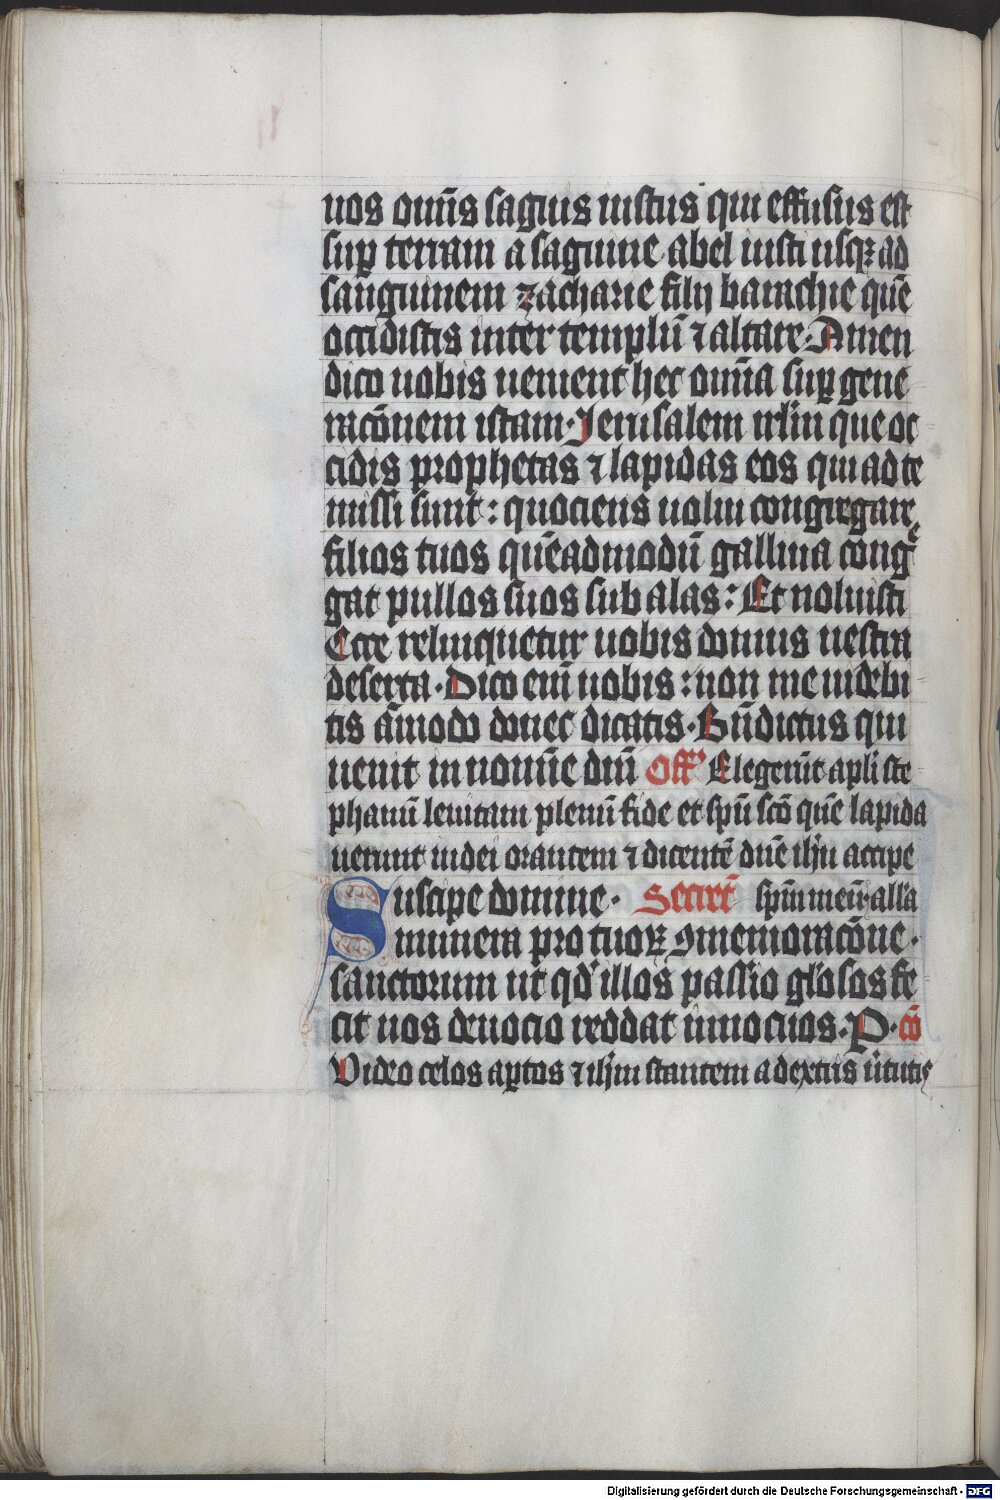 uos om̄s sagius iustus qui effusus est
sup terram a sagiuine abel iusti usqꝫ ad
sanguinem zacharie filij barachie quē
occidistis inter templū ⁊ altare. Amen
dico uobis uenient hec om̄ia sup gene
racōnem istam. Jerusalem irlm que oc
cidis prophetas ⁊ lapidas eos qui ad te
missi sunt: quociens uolui congregare
filios tuos quēadmodū gallina cong
gat pullos suos sub alas: Et noluisti
Ecce relinquetur uobis domus uestra
deserta. Dico em̄ uobis: non me uidebi
tis āmodo donec dicatis. Bn̄dictus qui
uenit in nomīe dn̄i Off' Elegerūt apli ste
phanū leuitam plenū fide et spū scō quē lapida
uerunt iudei orantem ⁊ dicentē dn̄e ihu accipe
Suscipe domine. Secret̄ spm̄ meū. alla
munera pro tuoꝝ ꝯmemoracōne.
sanctorum ut qd' illos passio gl'osos fe
cit nos deuocio reddat innocuos. P. cō
Video celos aꝑtos ⁊ ihm stantem a dextris ūtutis
Digitalisierung gefördert durch die Deutsche Forschungsgemeinschaft - DFG